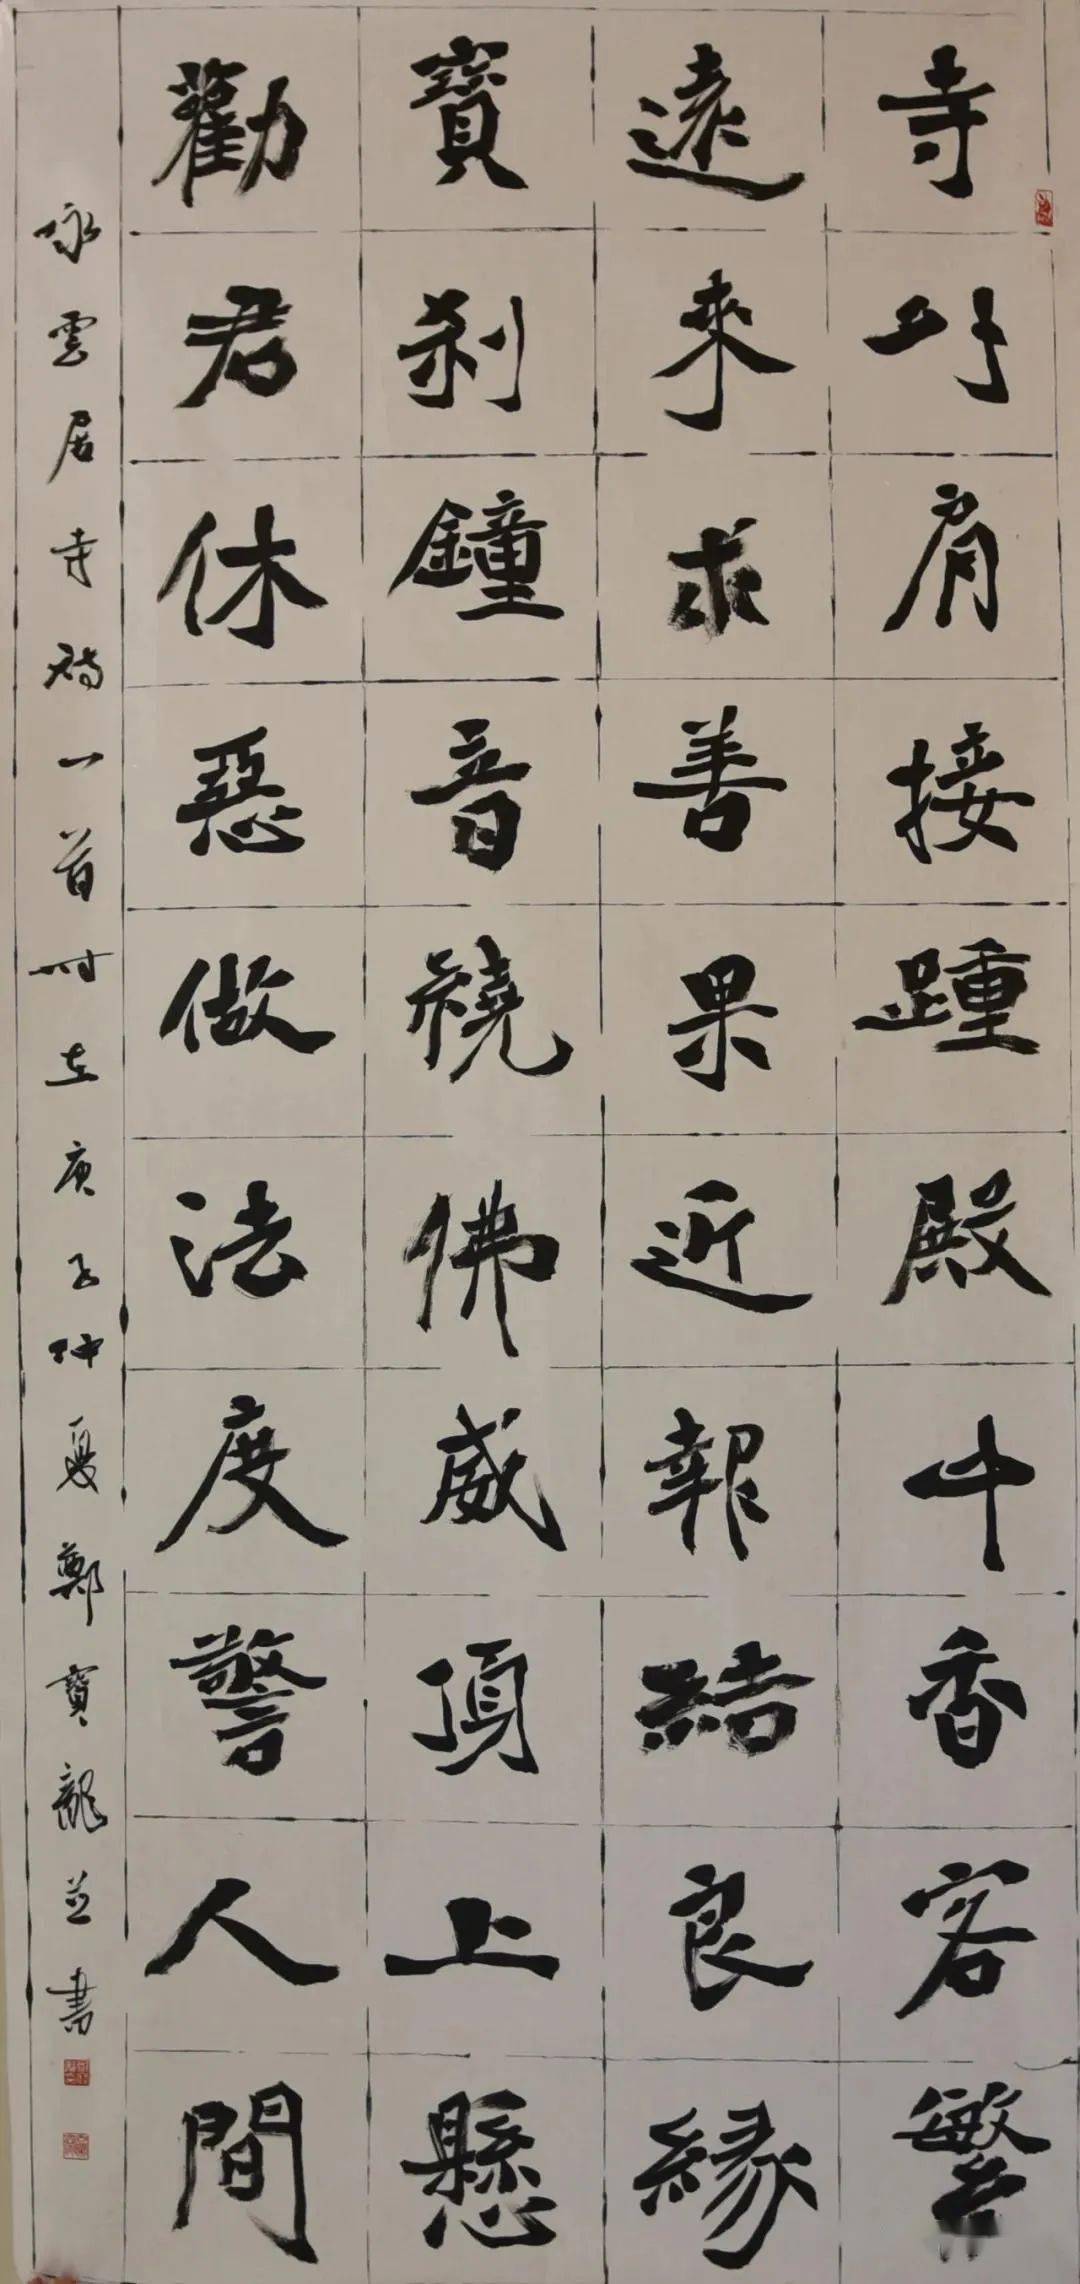 寺外肩接踵殿中香客繁
遠來求善果近報結良緣
寶刹鐘音繞佛威頂上懸
勸君休惡做法度警人間
咏雲居寺詩一首時在庚子仲夏鄭寶龍並書